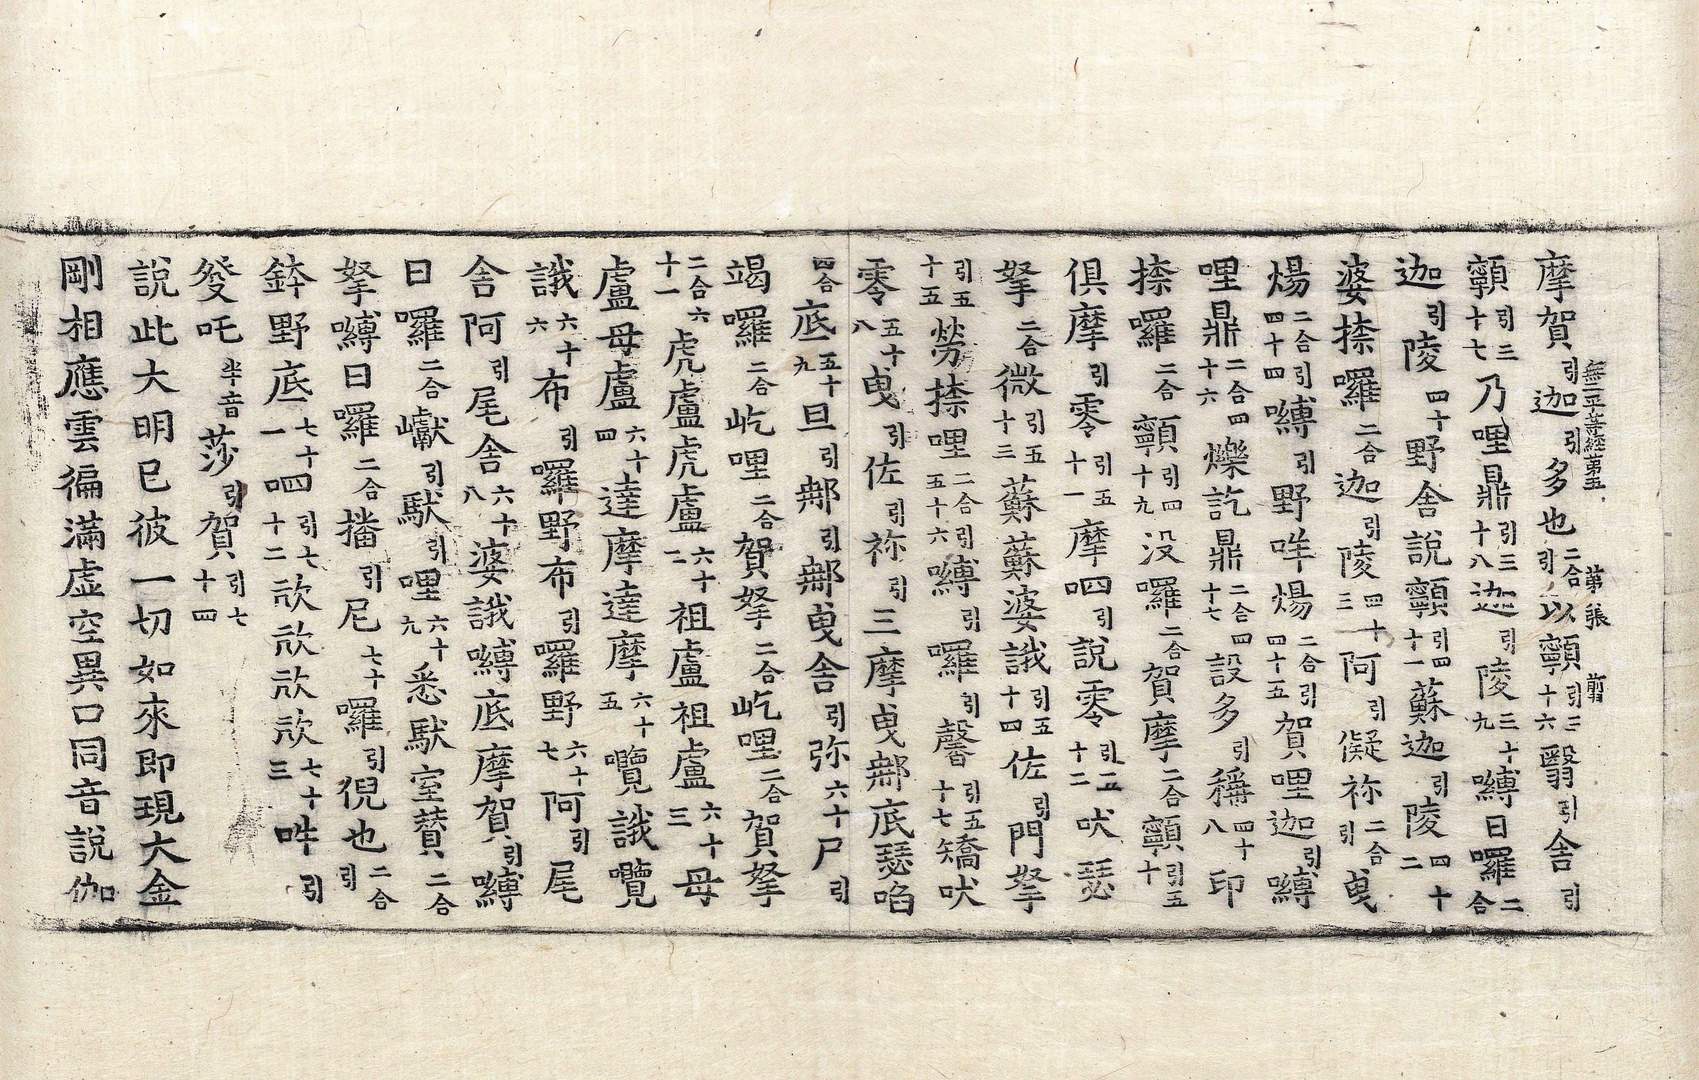 摩賀引迦引多也二合引以顙引三十六翳引舍引
顙引三十七乃哩鼎引三十八迦引陵三十九嚩日囉二合
迦引陵四十野舍說顙引四十一蘇迦引陵四十二
婆捺囉二合迦引陵四十三阿引儗祢二合引曳
煬二合引四十四嚩引野吽煬二合引四十五賀哩迦引嚩
哩鼎二合四十六爍訖鼎二合四十七設多引稱四十八印
捺囉二合顙引四十九没囉二合賀摩二合顙引五十
俱摩引零引五十一摩呬引說零引五十二吠瑟
拏二合微引五十三蘇蘇婆誐引五十四佐引門拏
引五十五勞捺哩二合引五十六嚩引囉引馨引五十七矯吠
零五十八曳引佐引祢引三摩曳鄁底瑟焰
四合底五十九旦引鄁引鄁曳舍引弥六十尸引
竭囉二合屹哩二合賀拏二合屹哩二合賀拏
二合六十一虎盧虎盧六十二祖盧祖盧六十三母
盧母盧六十四達摩達摩六十五囕誐囕
誐六十六布引囉野布引囉野六十七阿引尾
舍阿引尾舍六十八婆誐嚩底摩賀引嚩
日囉二合巘引馱引哩六十九悉馱室贊二合
拏嚩日囉二合播引尼七十囉引倪也二合引
鉢野底七十一呬引七十二㰦㰦㰦㰦七十三吽引
癹吒半音莎引賀引七十四
說此大明巳彼一切如來即現大金
剛相應雲徧滿虛空異口同音說伽